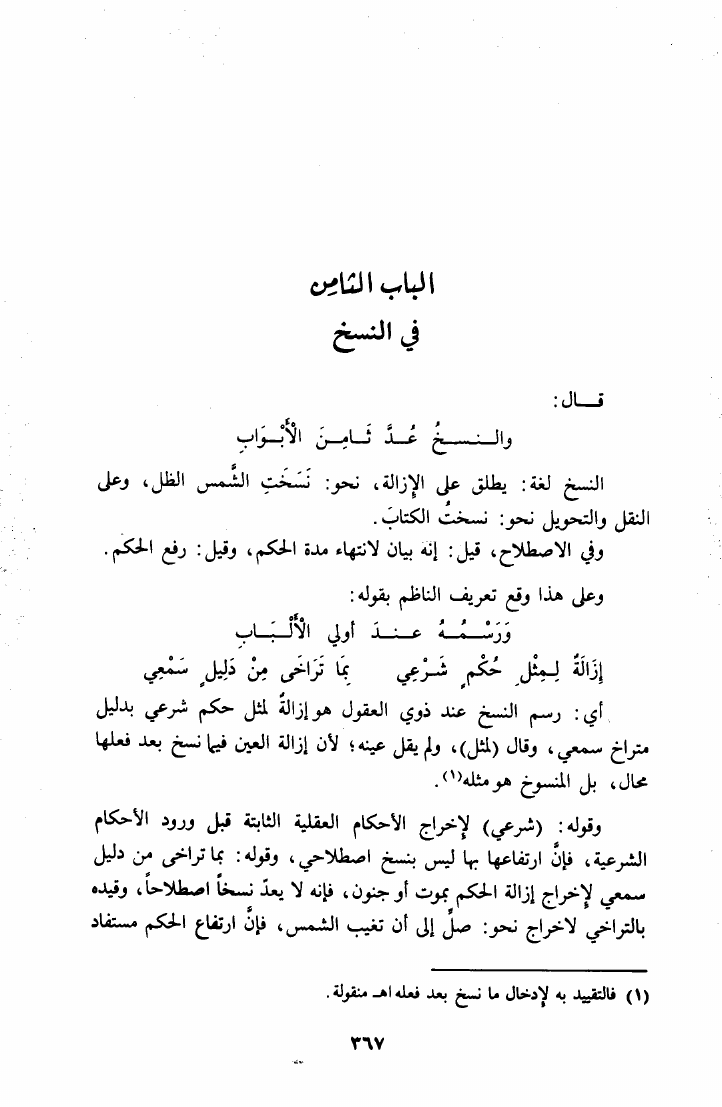 الباب الثامن
في النسخ
قـال:
والـنـسـخُ عُـدَّ ثَـامِـنَ الْأَبْـوَابِ
النسخ لغة: يطلق على الإزالة، نحو: نَسَخَتِ الشَّمس الظل، وعلى
النقل والتحويل نحو: نسختُ الكتابَ.
وفي الاصطلاح، قيل: إنه بيان لانتهاء مدة الحكم، وقيل: رفع الحكم.
وعلى هذا وقع تعريف الناظم بقوله:
وَرَسْـمُـهُ عـنـدَ أولي الْأَلْـبَـابِ
إِزَالَةٌ لِـمِثْلِ حُكْمٍ شَـرْعِي بِمَا تَرَاخَى مِنْ دَلِيلٍ سَمْعِي
أي: رسم النسخ عند ذوي العقول هو إزالةٌ لمثل حكم شرعي بدليل
متراخ سمعي، وقال (لمثل)، ولم يقل عينه؛ لأن إزالة العين فيما نسخ بعد فعلها
محال، بل المنسوخ هو مثله(١).
وقوله: (شرعي) لإخراج الأحكام العقلية الثابتة قبل ورود الأحكام
الشرعية، فإنَّ ارتفاعها بها ليس بنسخ اصطلاحي، وقوله: بما تراخى من دليل
سمعي لإخراج إزالة الحكم بموت أو جنون، فإنه لا يعدّ نسخاً اصطلاحاً، وقيده
بالتراخي لاخراج نحو: صلِّ إلى أن تغيب الشمس، فإنَّ ارتفاع الحكم مستفاد
(١) فالتقييد به لإدخال ما نسخ بعد فعله اهـ منقولة.
٣٦٧